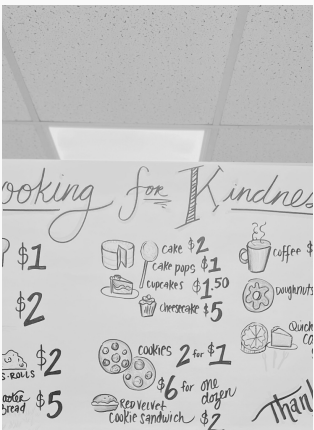 ooking for Kindnes
$1
$2
S-ROLLS $2
Bread $5
cake $2
cake pops $1
cupcakes $1.50
cheesecake $5
cookies 2 for $1
$6 for one
dozen
Red Velvet
Cookie Sandwich $2
coffee $
Doughnuts
Quick
Co
Than